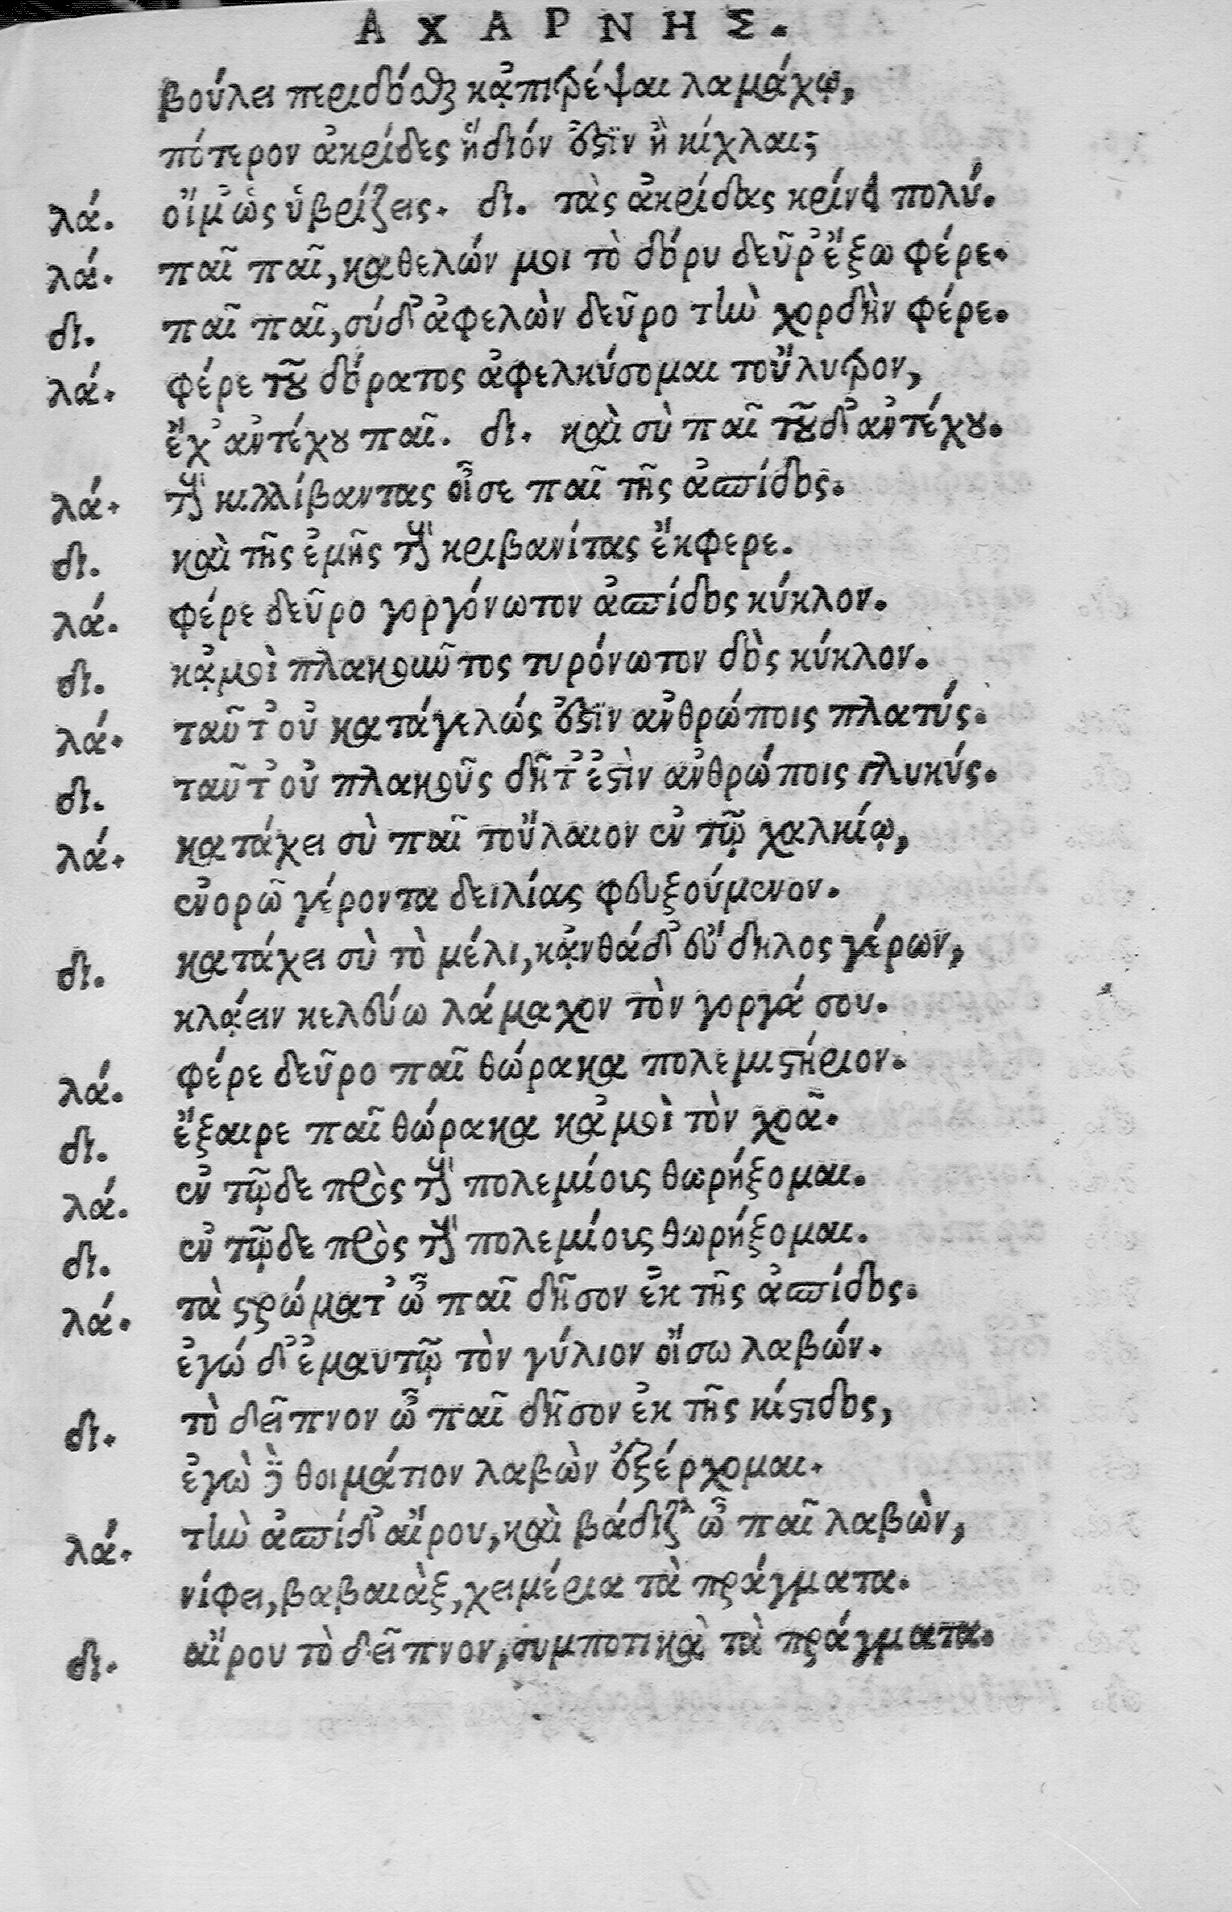 ΑΧΑΡΝΗΣ.
βούλει περιδόσθαι κᾀπιτρέψαι λαμάχῳ,
πότερον ἀκρίδες ἥδιόν ἐστιν ἢ κίχλαι;
λά. οἴμ' ὡς ὑβρίζεις. δι. τὰς ἀκρίδας κρίνει πολύ.
λά. παῖ παῖ, καθελών μοι τὸ δόρυ δεῦρ' ἔξω φέρε.
δι. παῖ παῖ, σύ δ' ἀφελὼν δεῦρο τὴν χορδὴν φέρε.
λά. φέρε τοῦ δόρατος ἀφελκύσομαι τοὔλυτρον,
ἔχ' ἀντέχου παῖ. δι. καὶ σὺ παῖ τοῦδ' ἀντέχου.
λά. τοὺς κιλλίβαντας οἶσε παῖ τῆς ἀσπίδος.
δι. καὶ τῆς ἐμῆς τοὺς κριβανίτας ἔκφερε.
λά. φέρε δεῦρο γοργόνωτον ἀσπίδος κύκλον.
δι. κᾀμοὶ πλακοῦντος τυρόνωτον δὸς κύκλον.
λά. ταῦτ' οὐ κατάγελώς ἐστιν ἀνθρώποις πλατύς.
δι. ταῦτ' οὐ πλακοῦς δῆτ' ἐστὶν ἀνθρώποις γλυκύς.
λά. κατάχει σὺ παῖ τοὔλαιον ἐν τῷ χαλκίῳ,
ἐνορῶ γέροντα δειλίας φευξούμενον.
δι. κατάχει σὺ τὸ μέλι, κᾀνθάδ' εὔδηλος γέρων,
κλᾴειν κελεύω λάμαχον τὸν γοργάσου.
λά. φέρε δεῦρο παῖ θώρακα πολεμιστήριον.
δι. ἔξαιρε παῖ θώρακα κἀμοὶ τὸν χοᾶ.
λά. ἐν τῷδε πρὸς τοὺς πολεμίους θωρήξομαι.
δι. ἐν τῷδε πρὸς τοὺς πολεμίους θωρήξομαι.
λά. τὰ στρώματ' ὦ παῖ δῆσον ἐκ τῆς ἀσπίδος.
ἐγώ δ' ἐμαυτῷ τὸν γύλιον οἴσω λαβών.
δι. τὸ δεῖπνον ὦ παῖ δῆσον ἐκ τῆς κίστιδος,
ἐγὼ δὲ θοιμάτιον λαβὼν ἐξέρχομαι.
λά. τὴν ἀσπίδ' αἴρου, καὶ βάδιζ' ὦ παῖ λαβὼν,
νίφει, βαβαιὰξ, χειμέρια τὰ πράγματα.
δι. αἴρου τὸ δεῖπνον, συμποτικὰ τὰ πράγματα.